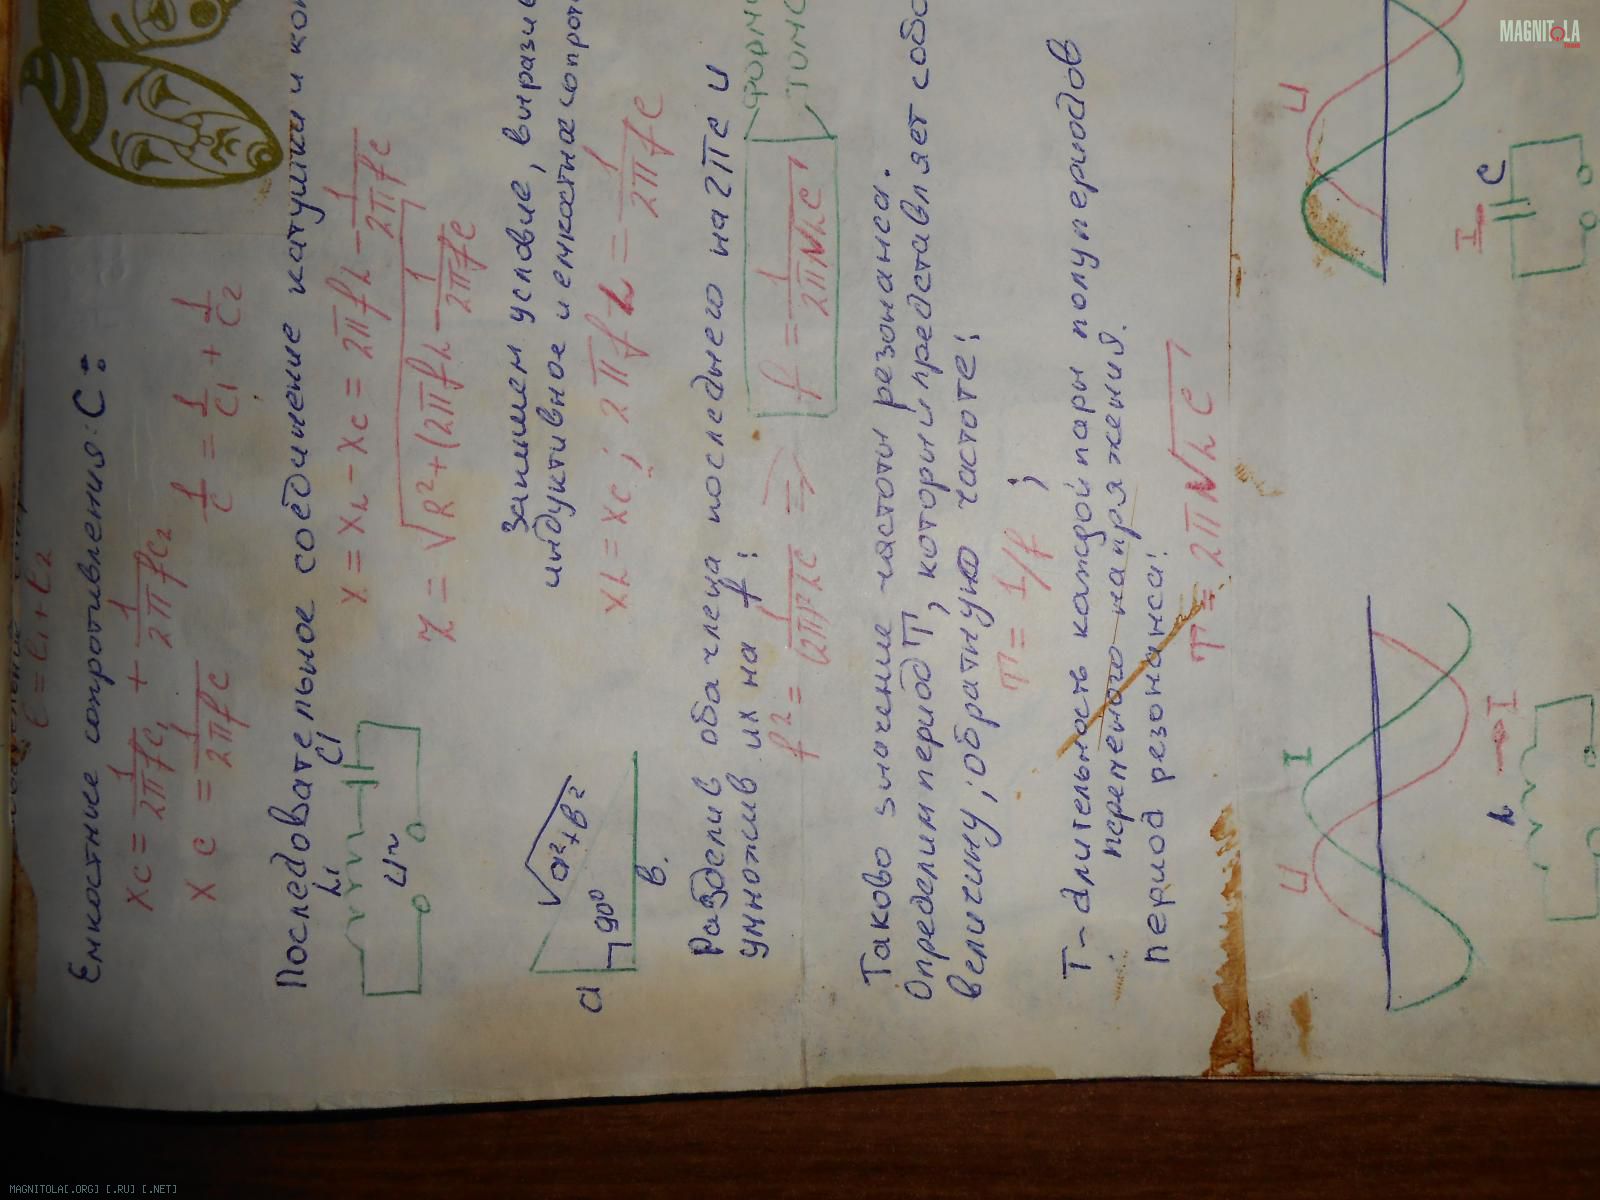 ℓ = ℓ1 + ℓ2
Емкостные сопротивления: C:
XC = 1/2πfC1 + 1/2πfC2
XC = 1/2πfC
1/C = 1/C1 + 1/C2
Последовательное соединение катушки и
L1 C1
U~
X = XL - XC = 2πfL - 1/2πfC
Z = √R²+(2πfL - 1/2πfC
Запишем условие,
индуктивное и емкостное
XL = XC; 2πfL = 1/2πfC
a
90°
√a²+b²
в.
Разделив оба члена последнего на 2πc и
умножив их на f:
f² = 1/(2π)²LC ⇒ f = 1/2π√LC
Таково значение частоты резонанса.
Определим период T, который представляет
величину; обратную частоте:
T = 1/f ;
T - длительность каждой пары полупериодов
переменого напряжения.
Период резонанса!
T = 2π√LC
U I
U
L → I
I C
MAGNITOLA
MAGNITOLA[.ORG] [.RU] [.NET]